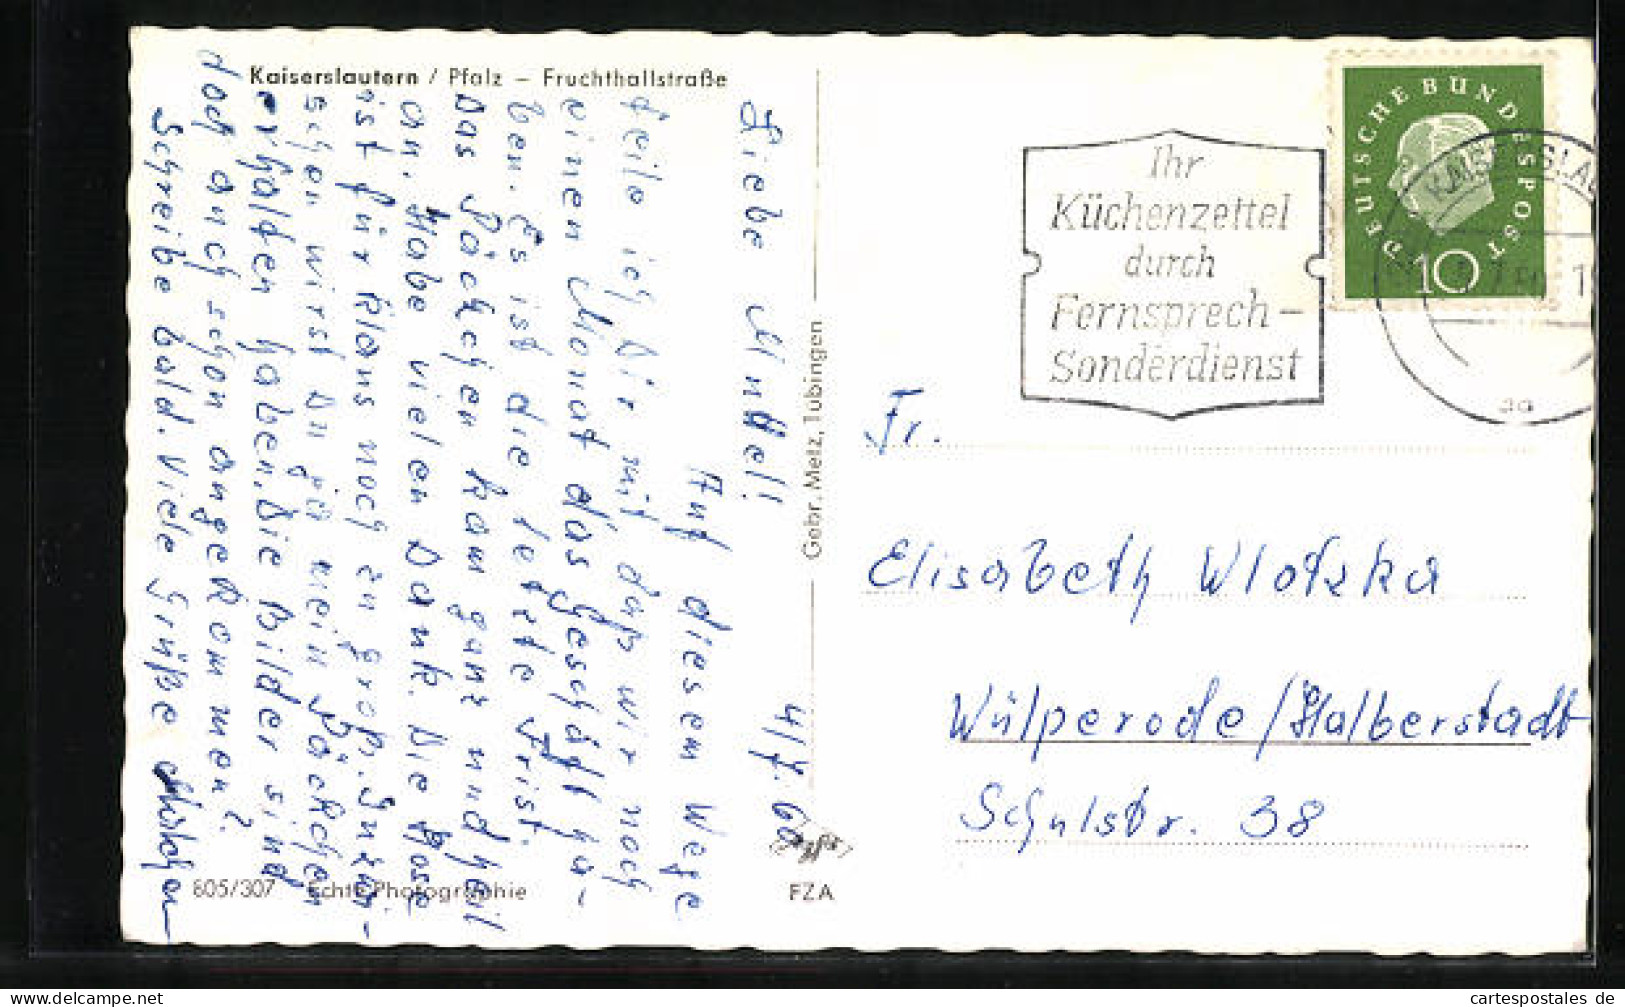 Kaiserslautern / Pfalz – Fruchthallstraße
4/7. 60
Liebe Muttel!
Auf diesem Wege
teile ich Dir mit, daß wir noch
einen Monat das Geschäft ha-
ben. Es ist die letzte Frist.
Das Päckchen kam ganz und heil
an. Habe vielen Dank. Die Hose
ist für Klaus noch zu groß. Inzwi-
schen wirst Du ja mein Päckchen
erhalten haben. Die Bilder sind
doch auch schon angekommen?
Schreibe bald. Viele Grüße
605/307 Echte Photographie
FZA
Gebr. Metz, Tübingen
Ihr
Küchenzettel
durch
Fernsprech-
Sonderdienst
DEUTSCHE BUNDESPOST
10
KAISERSLAU
Fr.
Elisabeth Wlotzka
Wülperode/Halberstadt
Schulstr. 38
© cartespostales de